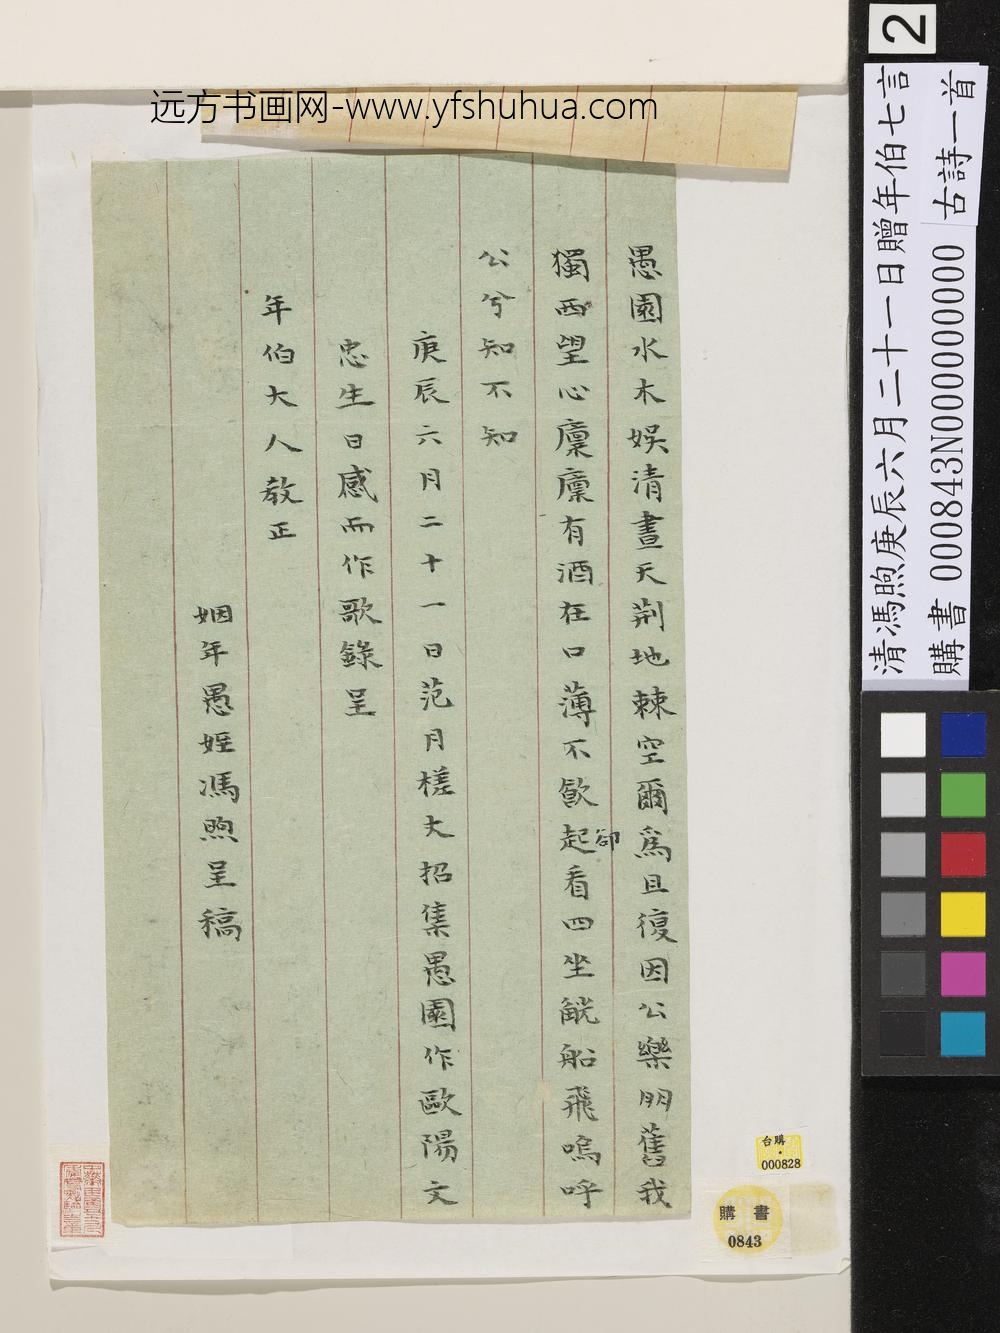 远方书画网-www.yfshuhua.com
愚園水木娛清晝天荆地棘空爾爲且復因公樂朋舊我
獨西望心廩廩有酒在口薄不飲起看四坐觥船飛嗚呼
卻
公兮知不知
庚辰六月二十一日范月槎大招集愚園作歐陽文
忠生日感而作歌錄呈
年伯大人敎正
姻年愚姪馮煦呈稿
2
清馮煦庚辰六月二十一日贈年伯七言
古詩一首
購書 000843N000000000
台購
000828
購書
0843